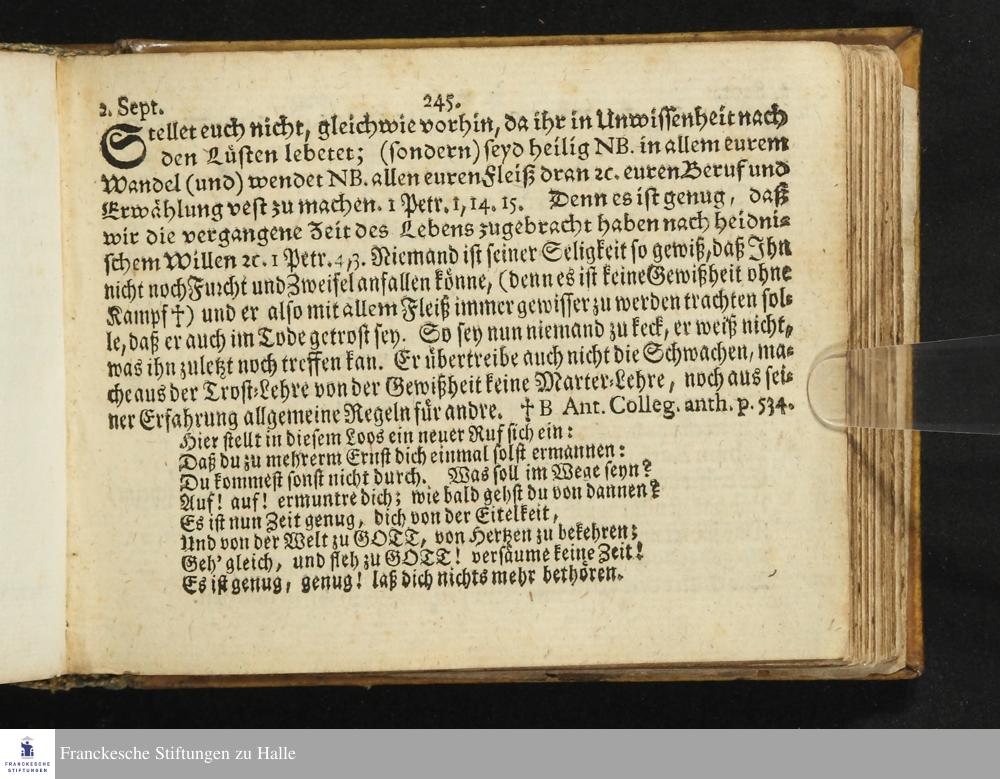 2. Sept. 245.
Stellet euch nicht, gleichwie vorhin, da ihr in Unwissenheit nach
den Lüsten lebetet; (sondern) seyd heilig NB. in allem eurem
Wandel (und) wendet NB. allen euren Fleiß dran ꝛc. euren Beruf und
Erwählung vest zu machen. 1 Petr. 1, 14. 15. Denn es ist genug, daß
wir die vergangene Zeit des Lebens zugebracht haben nach heidni⸗
schem Willen ꝛc. 1 Petr. 4, 3. Niemand ist seiner Seligkeit so gewiß, daß Ihn
nicht noch Furcht und Zweifel anfallen könne, (denn es ist keine Gewißheit ohne
Kampf †) und er also mit allem Fleiß immer gewisser zu werden trachten sol⸗
le, daß er auch im Tode getrost sey. So sey nun niemand zu keck, er weiß nicht,
was ihn zuletzt noch treffen kan. Er übertreibe auch nicht die Schwachen, ma⸗
che aus der Trost⸗Lehre von der Gewißheit keine Marter⸗Lehre, noch aus sei⸗
ner Erfahrung allgemeine Regeln für andre. † B Ant. Colleg. anth. p. 534.
Hier stellt in diesem Loos ein neuer Ruf sich ein:
Daß du zu mehrerm Ernst dich einmal solst ermannen:
Du kommest sonst nicht durch. Was soll im Wege seyn?
Auf! auf! ermuntre dich; wie bald gehst du von dannen?
Es ist nun Zeit genug, dich von der Eitelkeit,
Und von der Welt zu GOTT, von Hertzen zu bekehren;
Geh' gleich, und fleh zu GOTT! versäume keine Zeit!
Es ist genug, genug! laß dich nichts mehr bethören.
FRANCKESCHE
STIFTUNGEN
Franckesche Stiftungen zu Halle